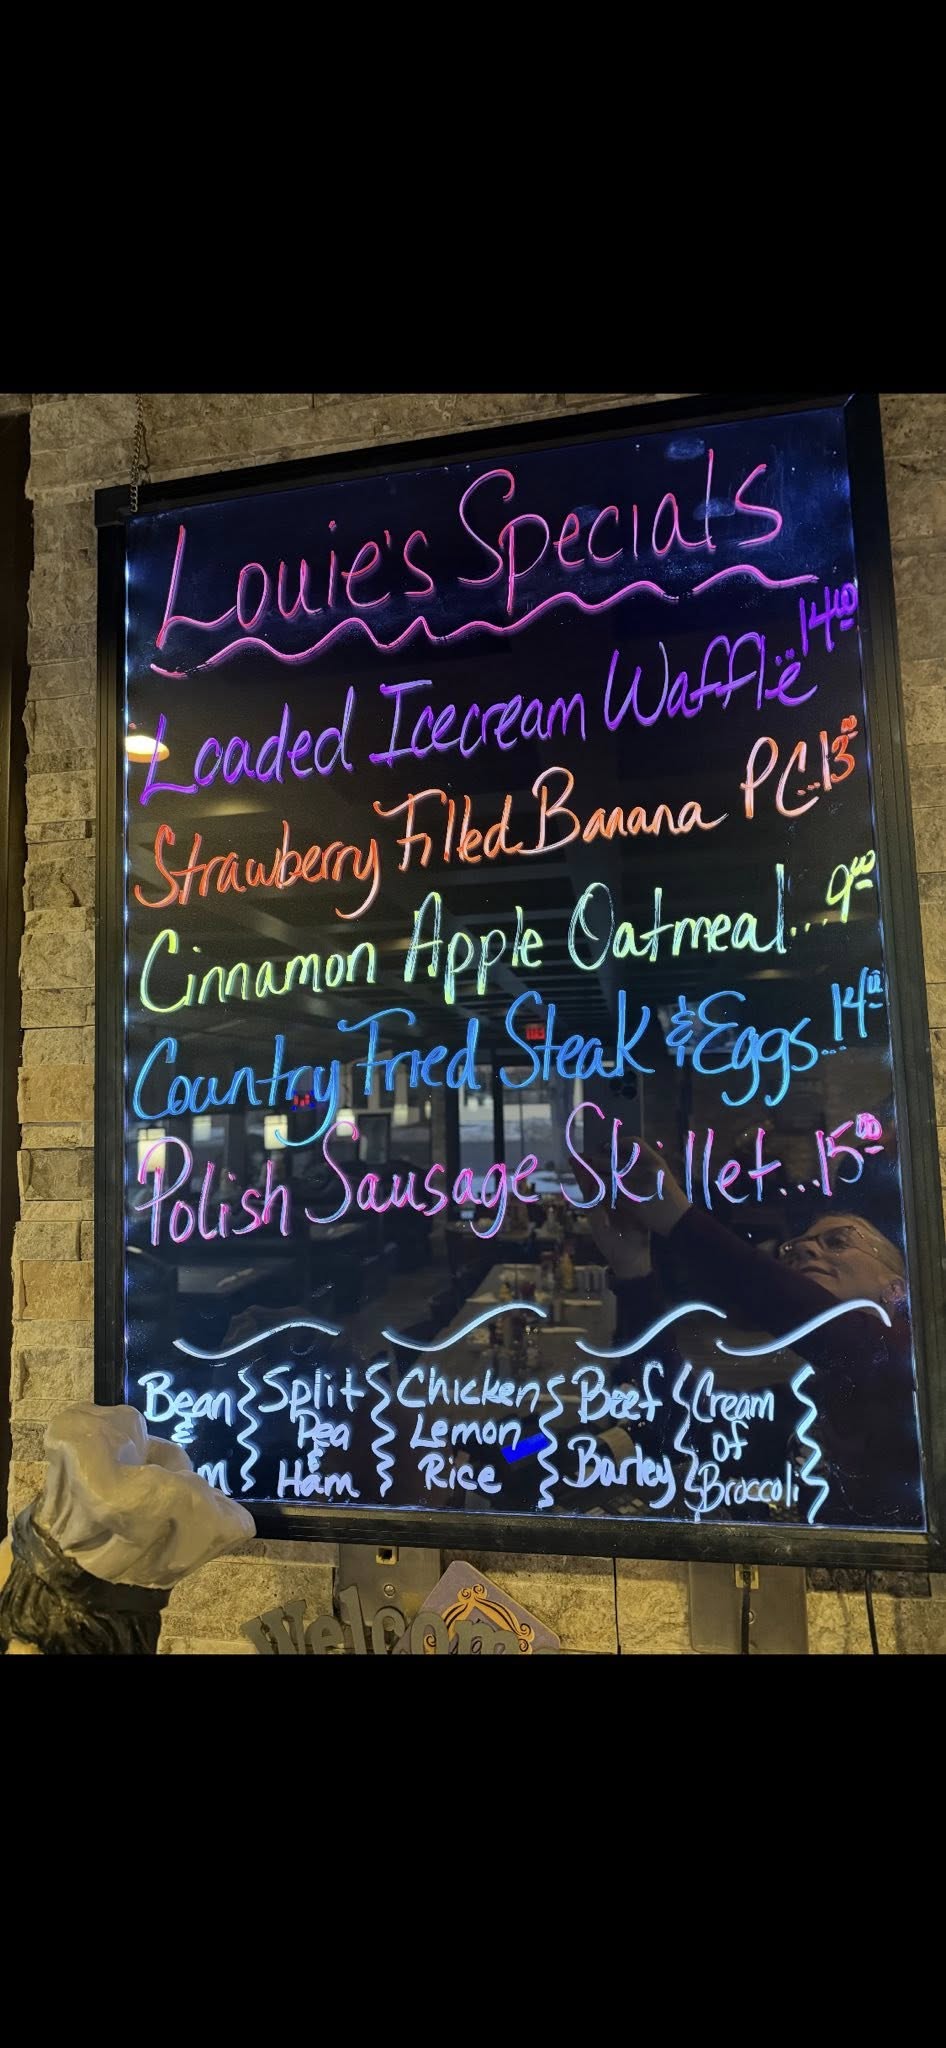 Louie's Specials
Loaded Icecream Waffle...14.00
Strawberry Filled Banana PC...13.00
Cinnamon Apple Oatmeal...9.00
Country Fried Steak & Eggs...14.00
Polish Sausage Skillet...15.00
Bean
&
m
Split
Pea
&
Ham
Chicken
Lemon
Rice
Beef
Barley
Cream
of
Broccoli
Welcome